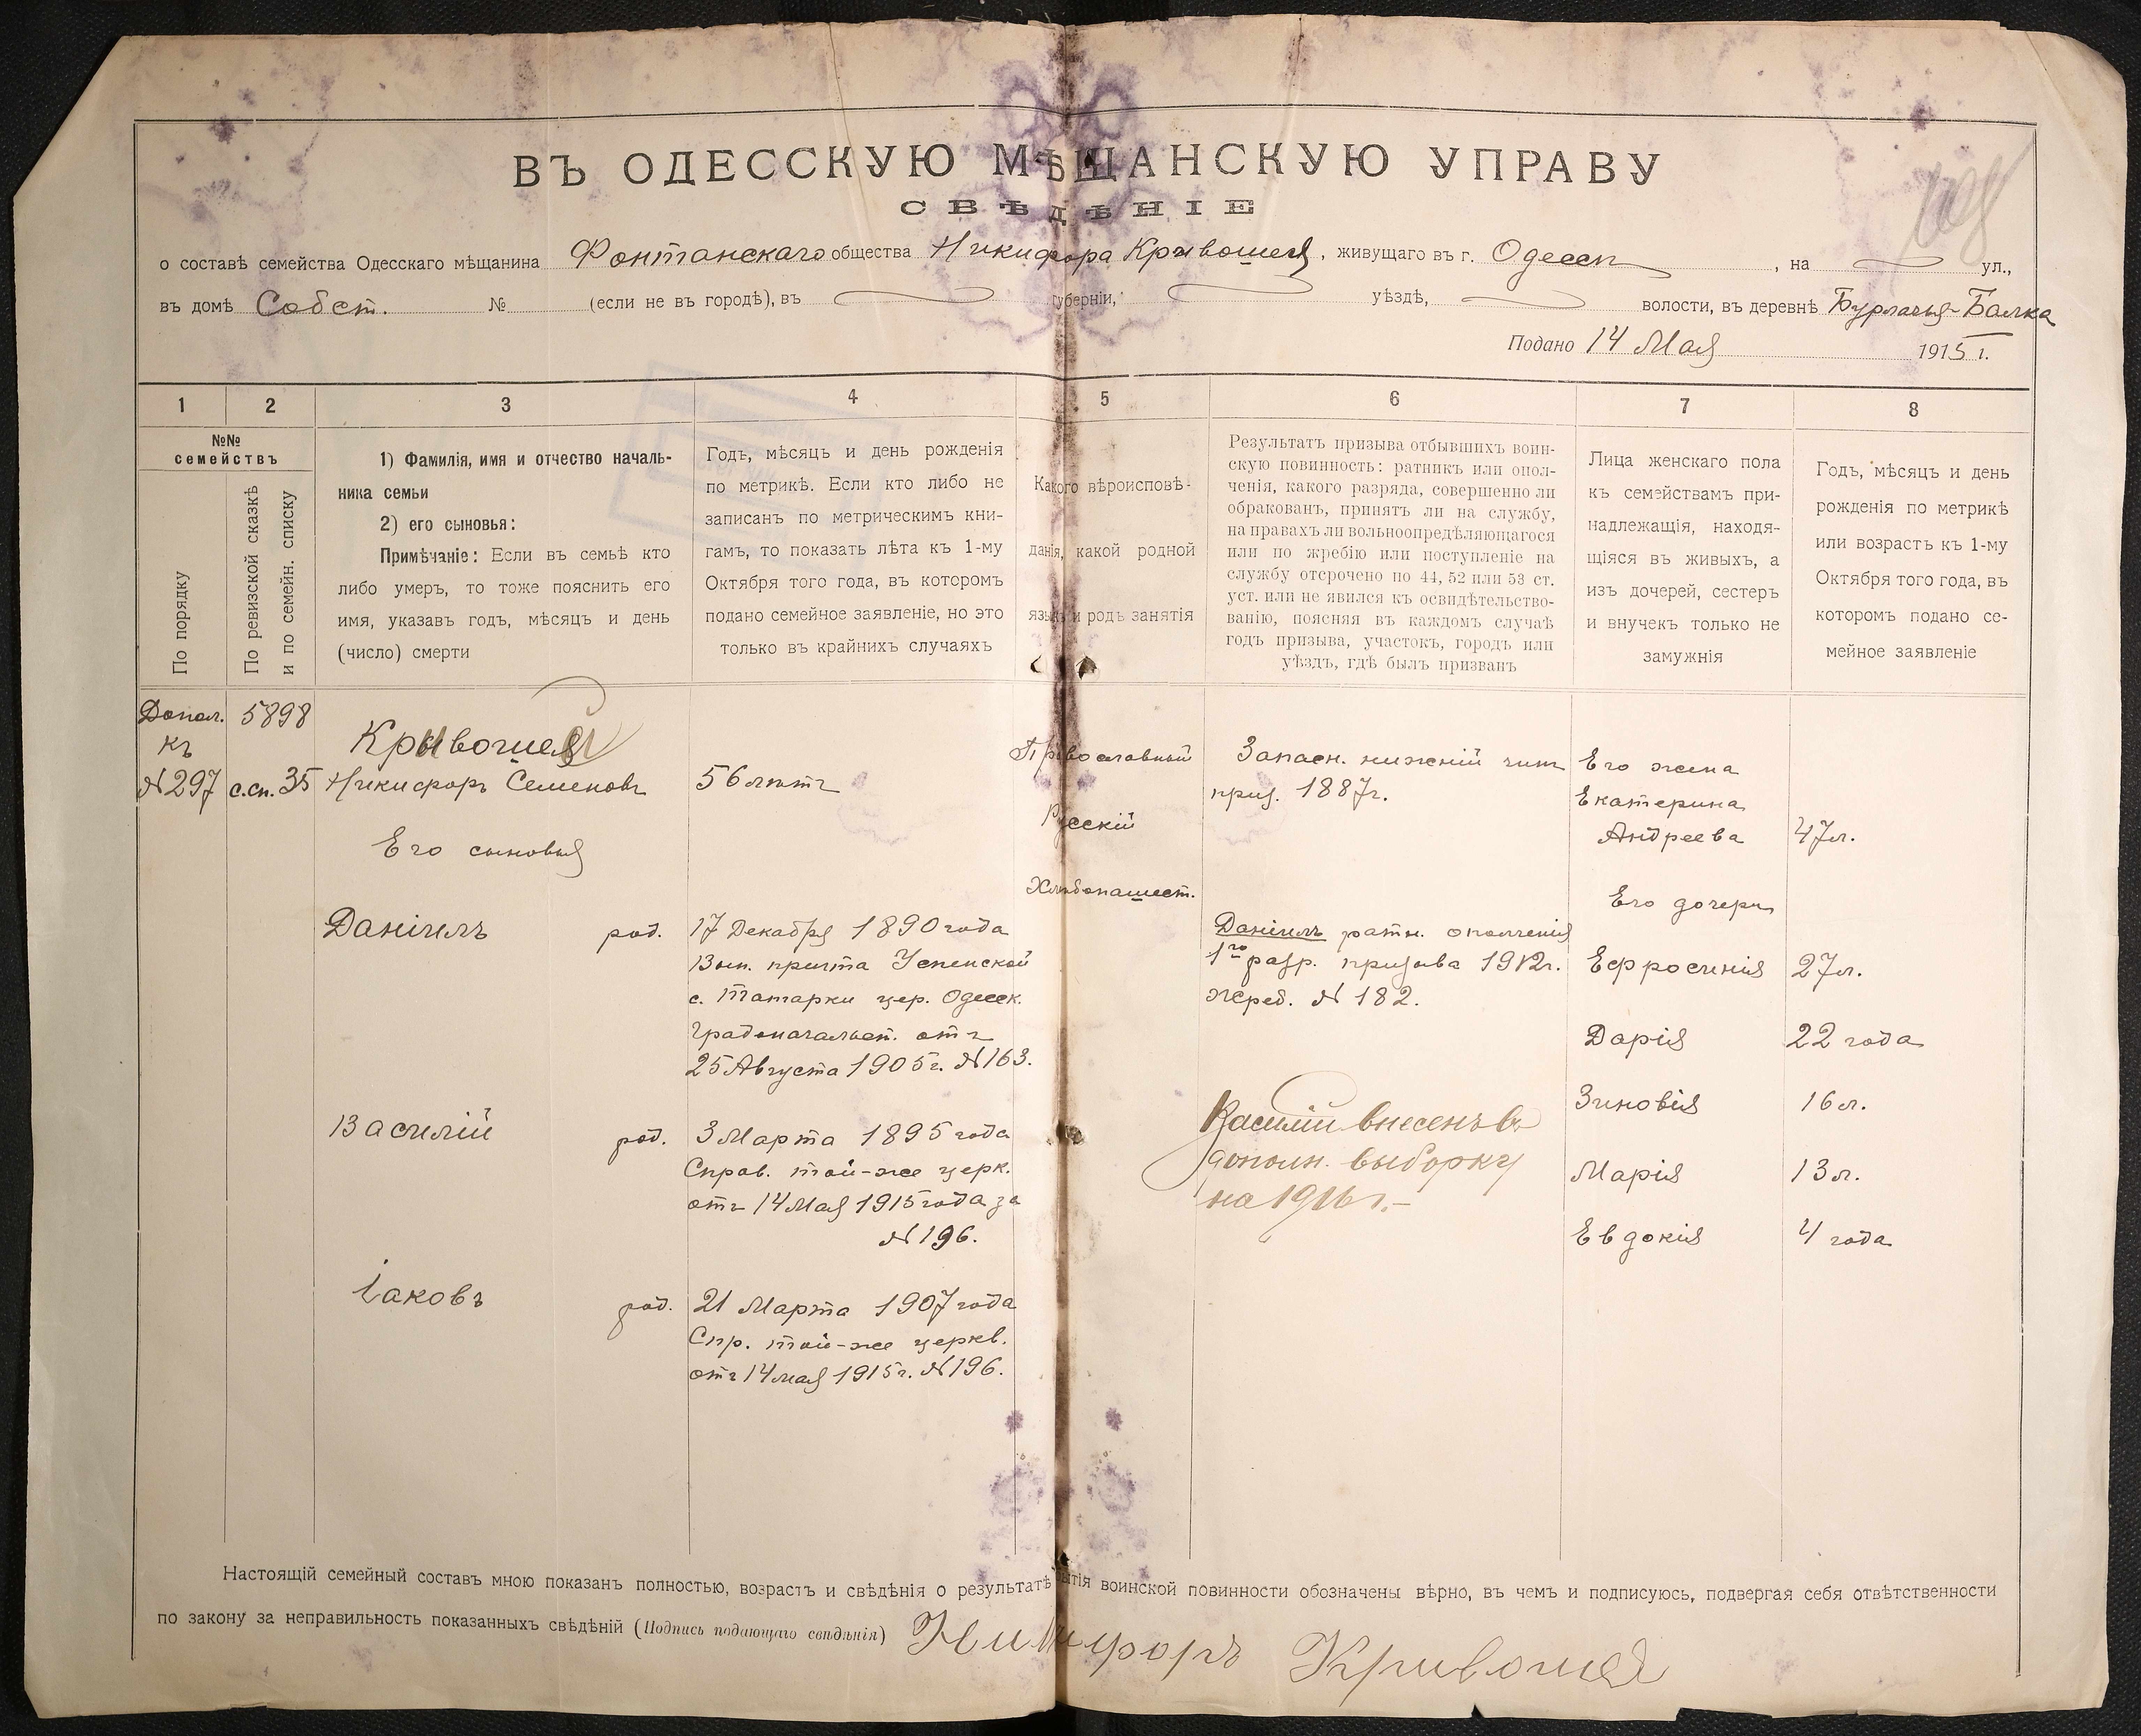 ВЪ ОДЕССКУЮ МѢЩАНСКУЮ УПРАВУ
СВѢДѢНІЕ
о составѣ семейства Одесскаго мѣщанина Фонтанскаго общества Никифора Крывошея, живущаго въ г. Одессѣ, на ул.,
въ домѣ Собст. № (если не въ городѣ), въ губерніи, уѣздѣ, волости, въ деревнѣ Бурлачья-Балка
Подано 14 Мая 1915 г.
1 2 3 4 5 6 7 8
№№
семействъ
По порядку
По ревизской сказкѣ
и по семейн. списку
1) Фамилія, имя и отчество началь-
ника семьи
2) его сыновья:
Примѣчаніе: Если въ семьѣ кто
либо умеръ, то тоже пояснить его
имя, указавъ годъ, мѣсяцъ и день
(число) смерти
Годъ, мѣсяцъ и день рожденія
по метрикѣ. Если кто либо не
записанъ по метрическимъ кни-
гамъ, то показать лѣта къ 1-му
Октября того года, въ которомъ
подано семейное заявленіе, но это
только въ крайнихъ случаяхъ
Какого вѣроисповѣ-
данія, какой родной
языкъ и родъ занятія
Результатъ призыва отбывшихъ воин-
скую повинность: ратникъ или опол-
ченія, какого разряда, совершенно ли
обракованъ, принятъ ли на службу,
на правахъ ли вольноопредѣляющагося
или по жребію или поступленіе на
службу отсрочено по 44, 52 или 53 ст.
уст. или не явился къ освидѣтельство-
ванію, поясняя въ каждомъ случаѣ
годъ призыва, участокъ, городъ или
уѣздъ, гдѣ былъ призванъ
Лица женскаго пола
къ семействамъ при-
надлежащія, находя-
щіяся въ живыхъ, а
изъ дочерей, сестеръ
и внучекъ только не
замужнія
Годъ, мѣсяцъ и день
рожденія по метрикѣ
или возрастъ къ 1-му
Октября того года, въ
которомъ подано се-
мейное заявленіе
Допол.
къ
№ 297
5898
с.сп. 35
Никифоръ Семеновъ
Его сыновья
56 лѣтъ
Православный
Русскій
Хлѣбопашест.
Запасн. нижній чинъ
приз. 1887г.
Его жена
Екатерина
Андреева 47л.
Его дочери
Даніилъ род.
17 Декабря 1890 года
Вып. причта Успенской
с. Татарки цер. Одесск.
градоначальст. отъ
25 Августа 1905г. № 163.
Даніилъ ратн. ополченія
1го разр. призыва 1912г.
жреб. № 182.
Ефросинія 27л.
Дарія 22 года
Зиновія 16л.
Марія 13л.
Евдокія 4 года
Василій род.
3 Марта 1895 года
Справ. той-же церк.
отъ 14 Мая 1915 года за
№ 196.
Василій внесенъ въ
дополн. выборку
на 1916 г.-
Іаковъ род.
21 Марта 1907 года
Спр. той-же церкв.
отъ 14 мая 1915г. № 196.
Настоящій семейный составъ мною показанъ полностью, возрастъ и свѣдѣнія о результатѣ воинской повинности обозначены вѣрно, въ чемъ и подписуюсь, подвергая себя отвѣтственности
по закону за неправильность показанныхъ свѣдѣній (Подпись подающаго свѣдѣнія) Никифоръ Кривошея